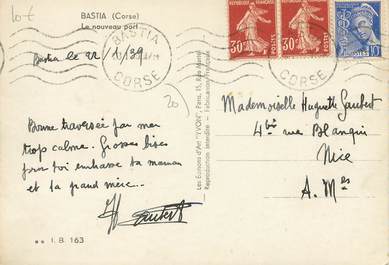 10 €
BASTIA (Corse)
Le nouveau port
Bastia le 22/1/39
BASTIA
CORSE
BASTIA
CORSE
RÉPUBLIQUE FRANÇAISE
30c POSTES
30c POSTES
10c
20
Bonne traversée par mer
trop calme. Grosses bises
pour toi embrasse ta maman
et ta grand mère.
Gaubert
Les Éditions d'Art "YVON", Paris, 15, Rue Martel
Reproduction interdite - Fabrication
Mademoiselle Huguette Gaubert
4bis rue Blanqui
Nice
A. Mes
** I. B. 163